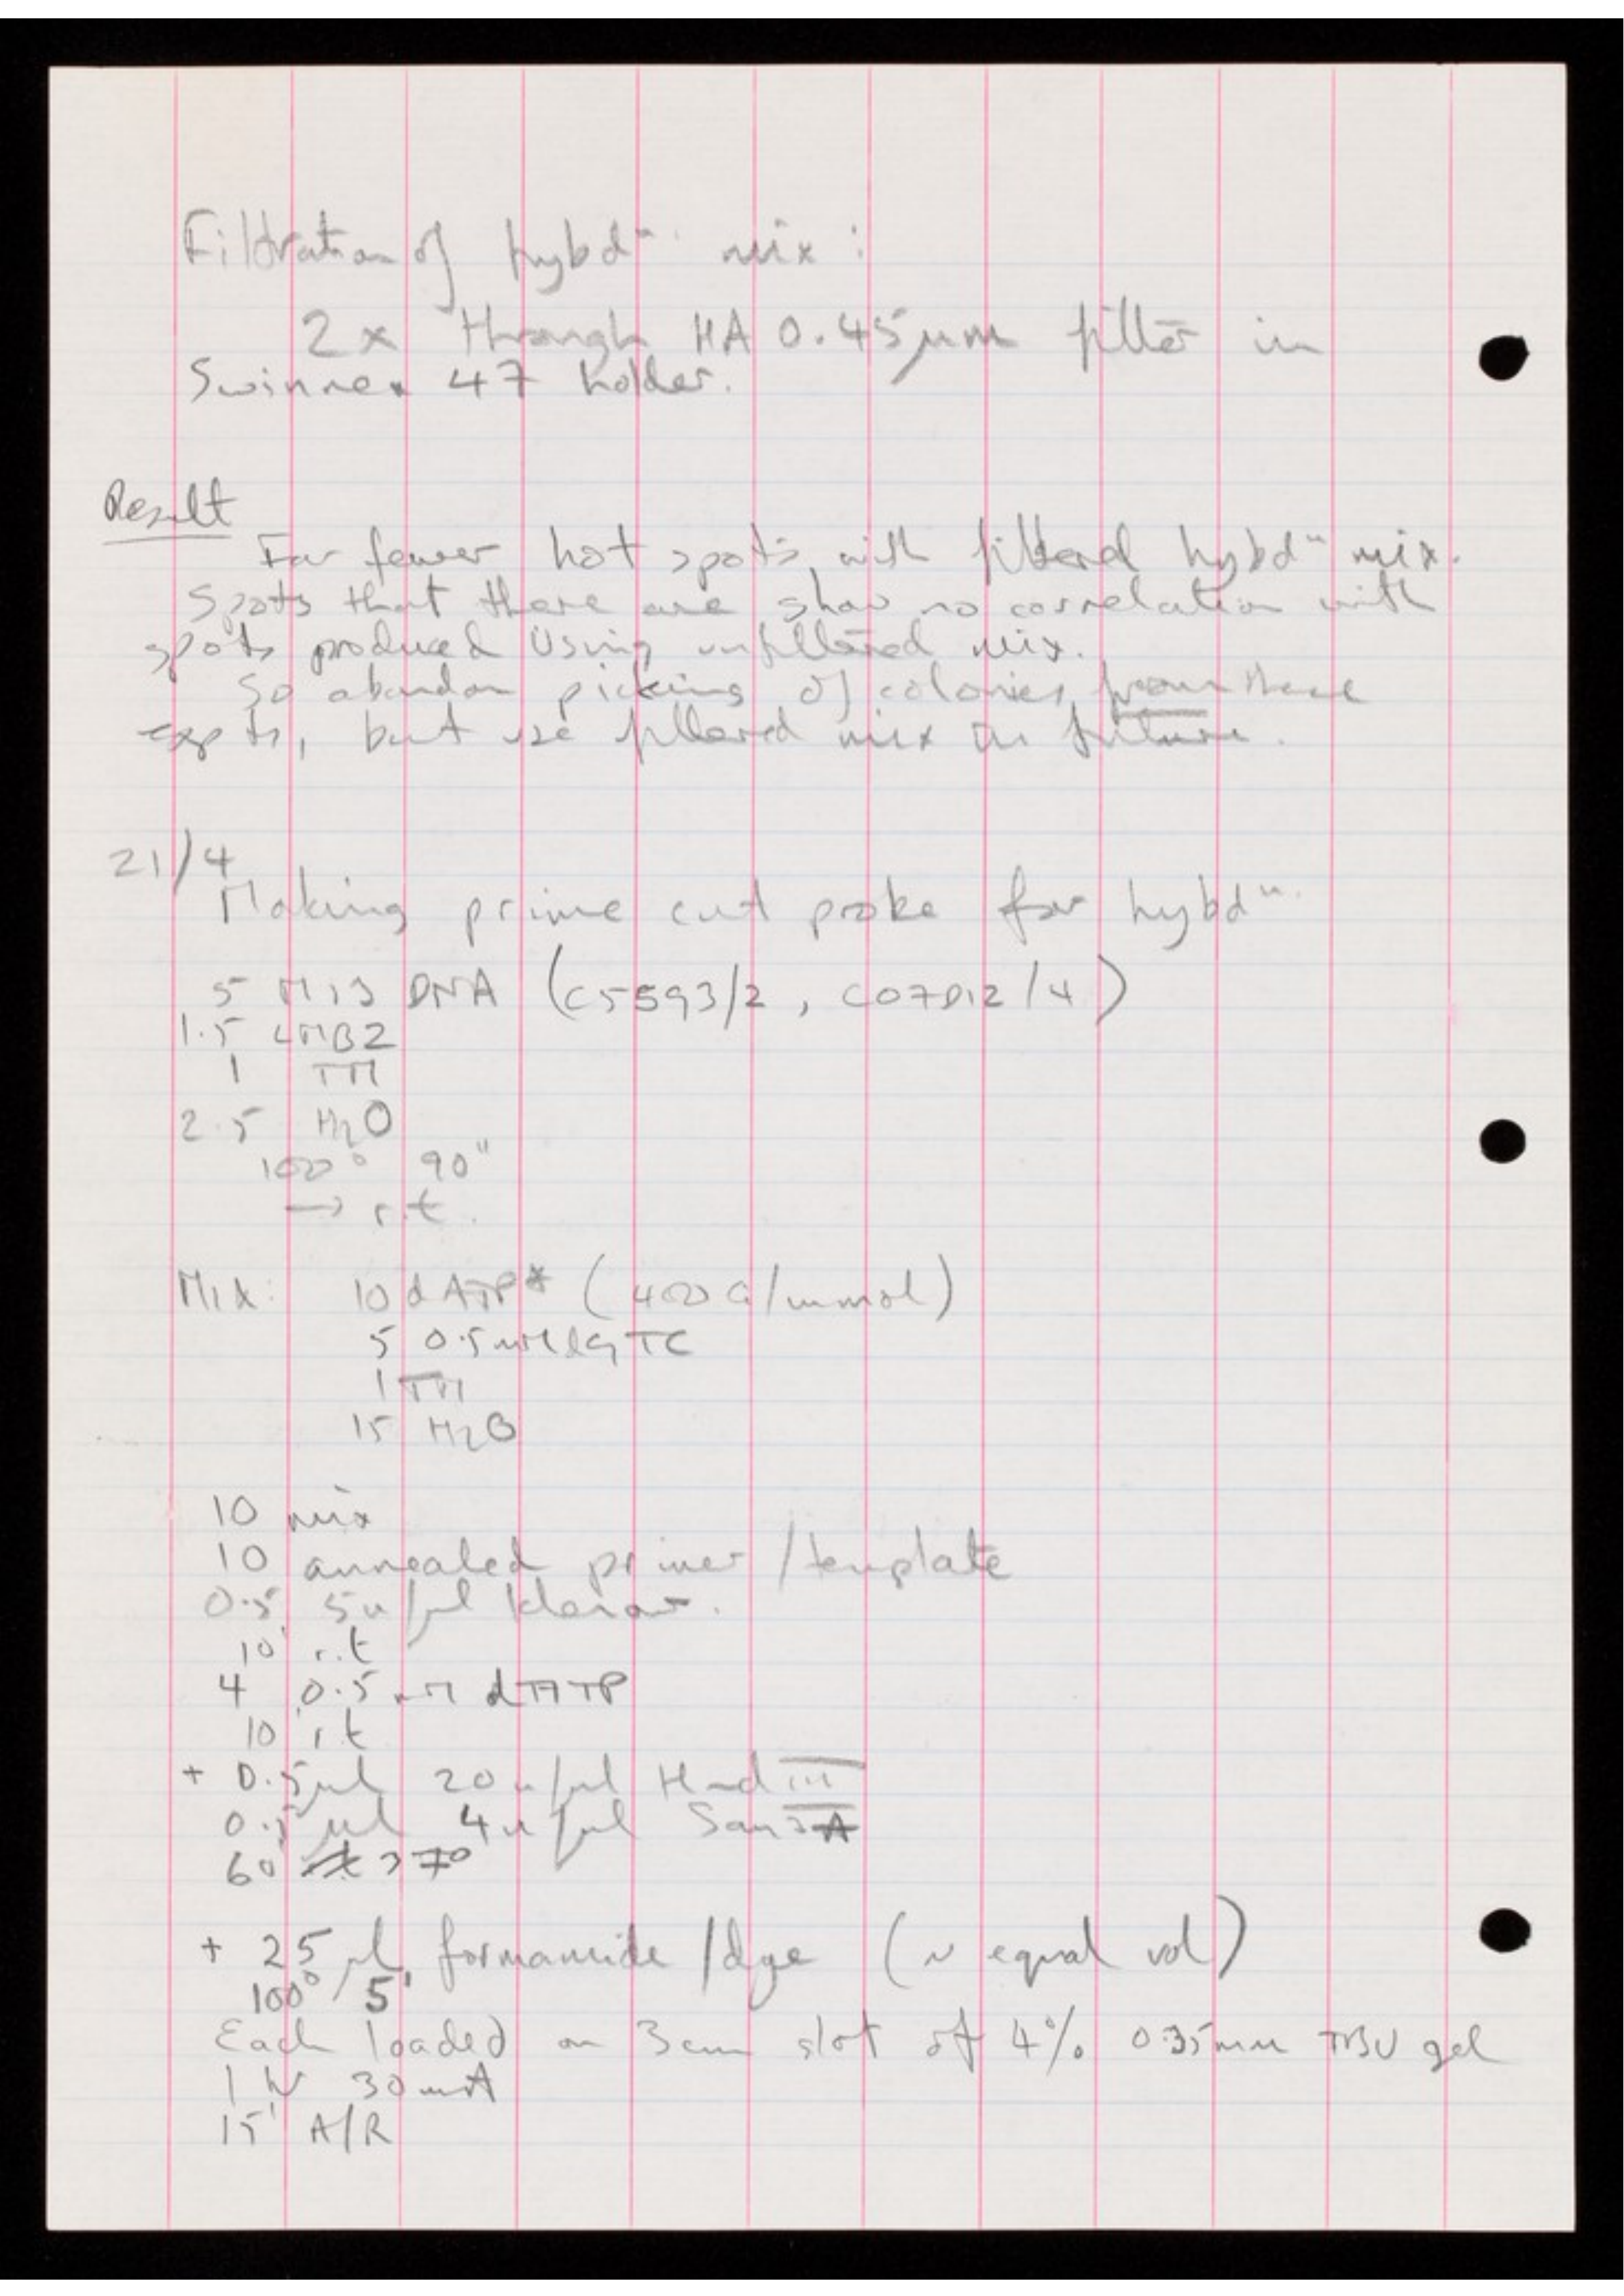 Filtration of hybdⁿ mix :
2x through HA 0.45μm filter in
Swinnex 47 holder.
Result
Far fewer hot spots with filtered hybdⁿ mix.
Spots that there are show no correlation with
spots produced using unfiltered mix.
So abandon picking of colonies from these
expts, but use filtered mix in future.
21/4
Making prime cut probe for hybdⁿ.
5 M13 DNA (C5593/2, C07D12/4)
1.5 LMB2
1 TM
2.5 H₂O
100° 90"
→ r.t.
Mix: 10 dATP* (400 Ci/mmol)
5 0.5 mM dGTC
1 TM
15 H₂O
10 mix
10 annealed primer / template
0.5 5u/μl Klenow.
10' r.t
4 0.5 mM dATP
10' r.t
+ 0.5μl 20u/μl Hind III
0.5μl 4u/μl Sau3A
60' 37°
+ 25 μl formamide / dye (~ equal vol)
100° 5'
Each loaded on 3cm slot of 4% 0.35mm TBU gel
1 hr 30mA
15' A/R